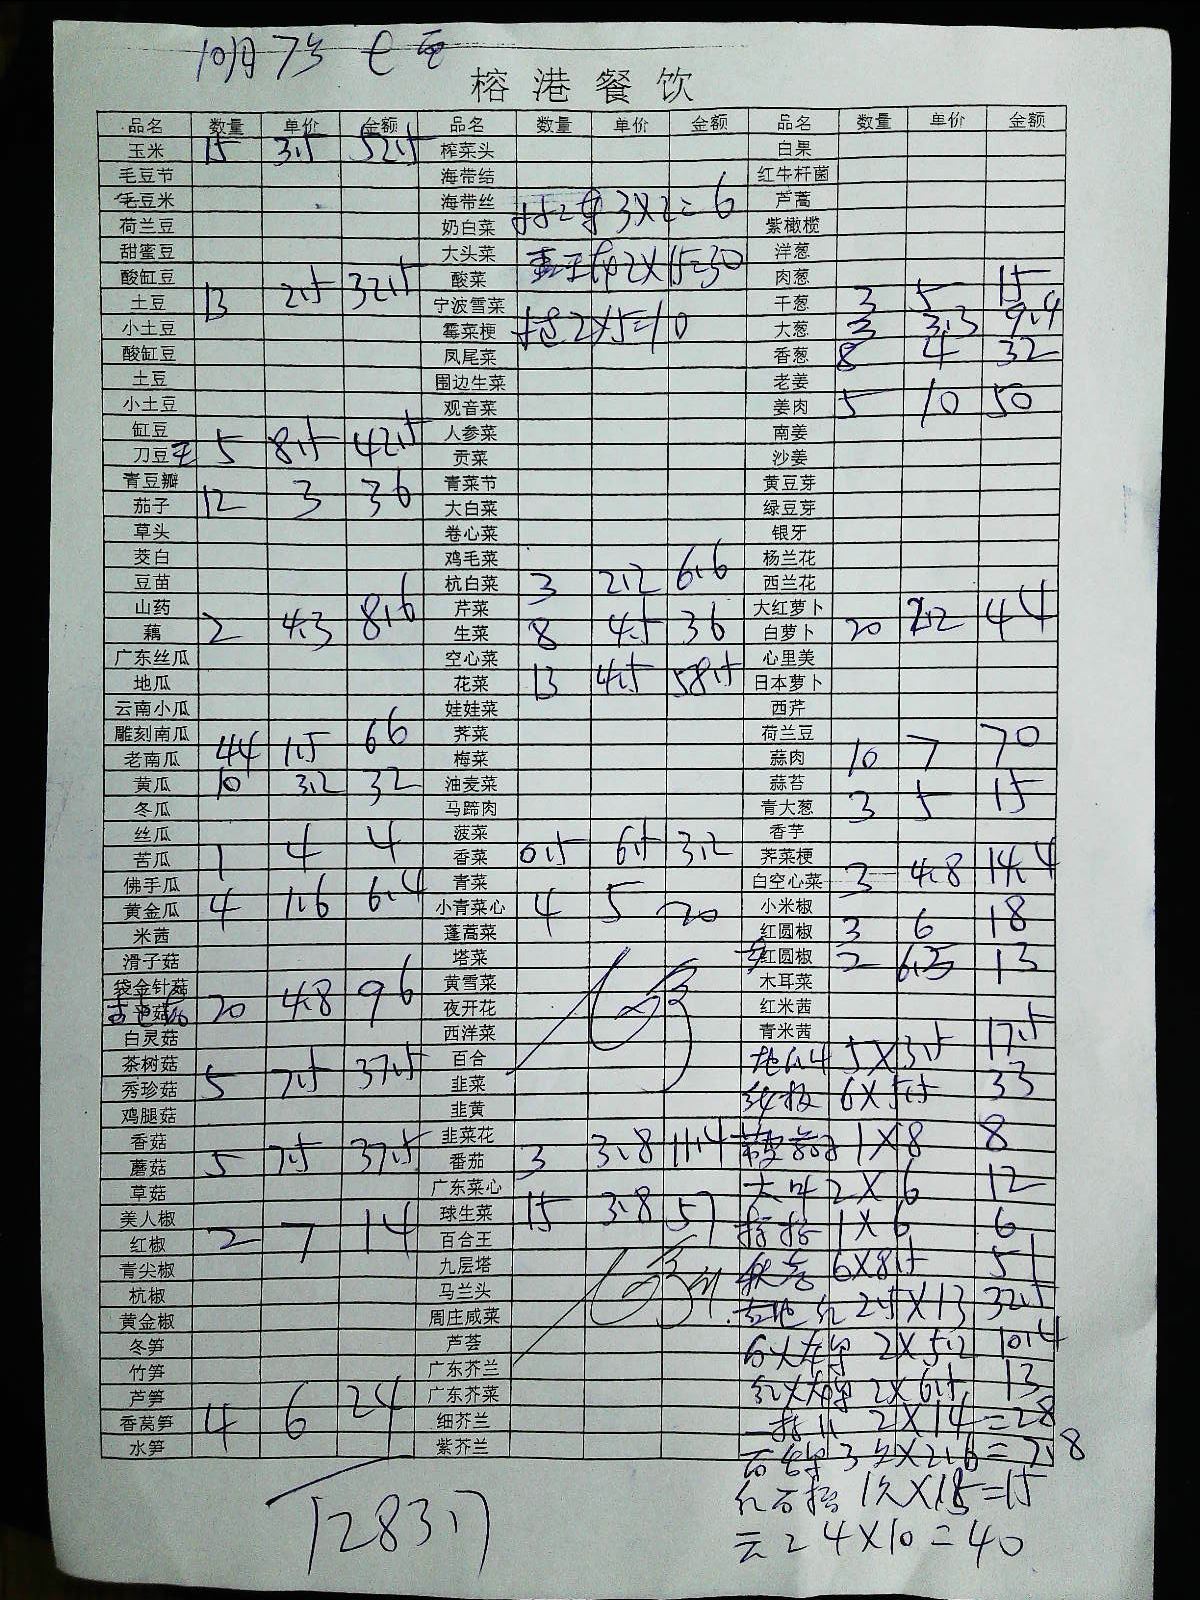 10月7号
榕港餐饮
品名 数量 单价 金额 品名 数量 单价 金额 品名 数量 单价 金额
玉米 15 3.5 52.5 榨菜头 白果
毛豆节 海带结 红牛杆菌
毛豆米 海带丝 芦蒿
荷兰豆 奶白菜 3X2=6 紫橄榄
甜蜜豆 大头菜 洋葱
酸缸豆 酸菜 2X15=30 肉葱
土豆 13 2.5 32.5 宁波雪菜 干葱 3 5 15
小土豆 霉菜梗 2X5=10 大葱 3 3.3 9.4
酸缸豆 凤尾菜 香葱 8 4 32
土豆 围边生菜 老姜
小土豆 观音菜 姜肉 5 10 50
缸豆 人参菜 南姜
刀豆 5 8.5 42.5 贡菜 沙姜
青豆瓣 青菜节 黄豆芽
茄子 12 3 36 大白菜 绿豆芽
草头 卷心菜 银牙
茭白 鸡毛菜 杨兰花
豆苗 杭白菜 3 2.2 6.6 西兰花
山药 芹菜 大红萝卜
藕 2 4.3 8.6 生菜 8 4.5 36 白萝卜 20 2.2 44
广东丝瓜 空心菜 心里美
地瓜 花菜 13 4.5 58.5 日本萝卜
云南小瓜 娃娃菜 西芹
雕刻南瓜 荠菜 荷兰豆
老南瓜 44 1.5 66 梅菜 蒜肉 10 7 70
黄瓜 10 3.2 32 油麦菜 蒜苔
冬瓜 马蹄肉 青大葱 3 5 15
丝瓜 菠菜 香芋
苦瓜 1 4 4 香菜 0.5 6.5 3.2 荠菜梗
佛手瓜 青菜 白空心菜 3 4.8 14.4
黄金瓜 4 1.6 6.4 小青菜心 4 5 20 小米椒
米茜 蓬蒿菜 红圆椒 3 6 18
滑子菇 塔菜 红圆椒 2 6.5 13
袋金针菇 黄雪菜 木耳菜
20 4.8 96 夜开花 红米茜
白灵菇 西洋菜 青米茜
茶树菇 百合 5X3.5 17.5
秀珍菇 5 7.5 37.5 韭菜 6X5.5 33
鸡腿菇 韭黄
香菇 韭菜花 1X8 8
蘑菇 5 7.5 37.5 番茄 3 3.8 11.4
草菇 广东菜心 大叶 2X6 12
美人椒 球生菜 15 3.8 57 1X6 6
红椒 2 7 14 百合王
青尖椒 九层塔 秋葵 6X8.5 51
杭椒 马兰头 2.5X13 32.5
黄金椒 周庄咸菜
冬笋 芦荟 2X5.2 10.4
竹笋 广东芥兰
芦笋 广东芥菜 2X6.5 13
香莴笋 4 6 24 细芥兰 2X14=28
水笋 紫芥兰 3X2.6=7.8
1X15=15
4X10=40
1283.7